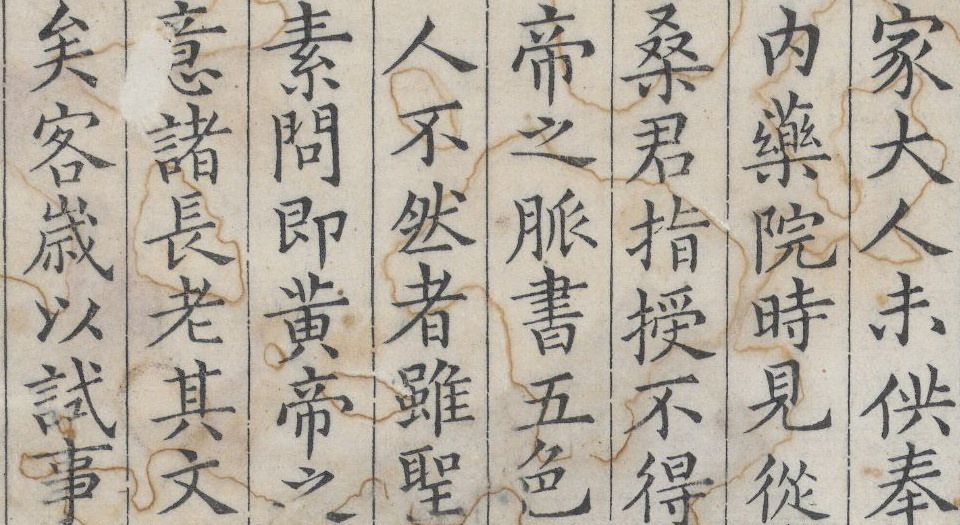 家大人未供奉
内藥院時見從
桑君指授不得
帝之脈書五色
人不然者雖聖
素問即黄帝之
意諸長老其文
矣客歳以試事